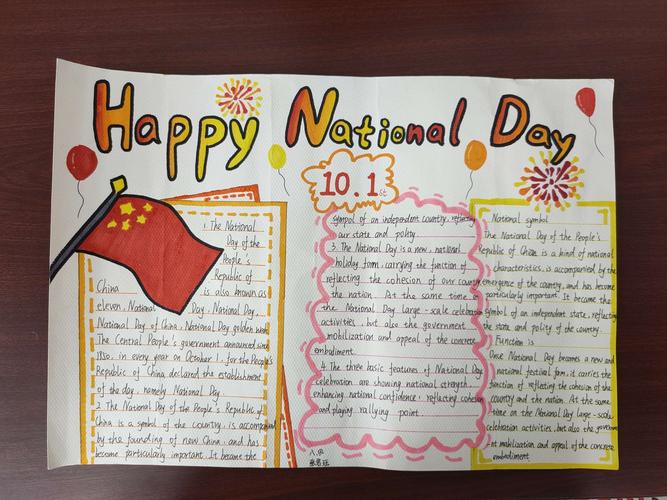 Happy National Day
10.1st
1. The National
Day of the
People's
Republic of
China is also known as
eleven, National Day, National Day,
National Day of China, National Day golden week
The Central People's government announced since
1950, in every year on October 1, for the People's
Republic of China declared the establishment
of the day, namely National Day
2. The National Day of the People's Republic of
China is a symbol of the country, is accompanied
by the founding of new China, and has
become particularly important. It became the
symbol of an independent country, reflecting
our state and polity.
3. The National Day is a new, national
holiday form, carrying the function of
reflecting the cohesion of our country,
the nation. At the same time on
the National Day large-scale celebration
activities, but also the government
mobilization and appeal of the concrete
embodiment.
4. The three basic features of National Day
celebration are showing national strength,
enhancing national confidence, reflecting cohesion
and playing rallying point
National symbol
The National Day of the People's
Republic of China is a kind of national
characteristics, is accompanied by the
emergence of the country, and has become
particularly important. It became the
symbol of an independent state, reflecting
the state and polity of the country.
Function is
Once National Day becomes a new and
national festival form, it carries the
function of reflecting the cohesion of the
country and the nation. At the same
time on the National Day large-scale
celebration activities, but also the government
mobilization and appeal of the concrete
embodiment